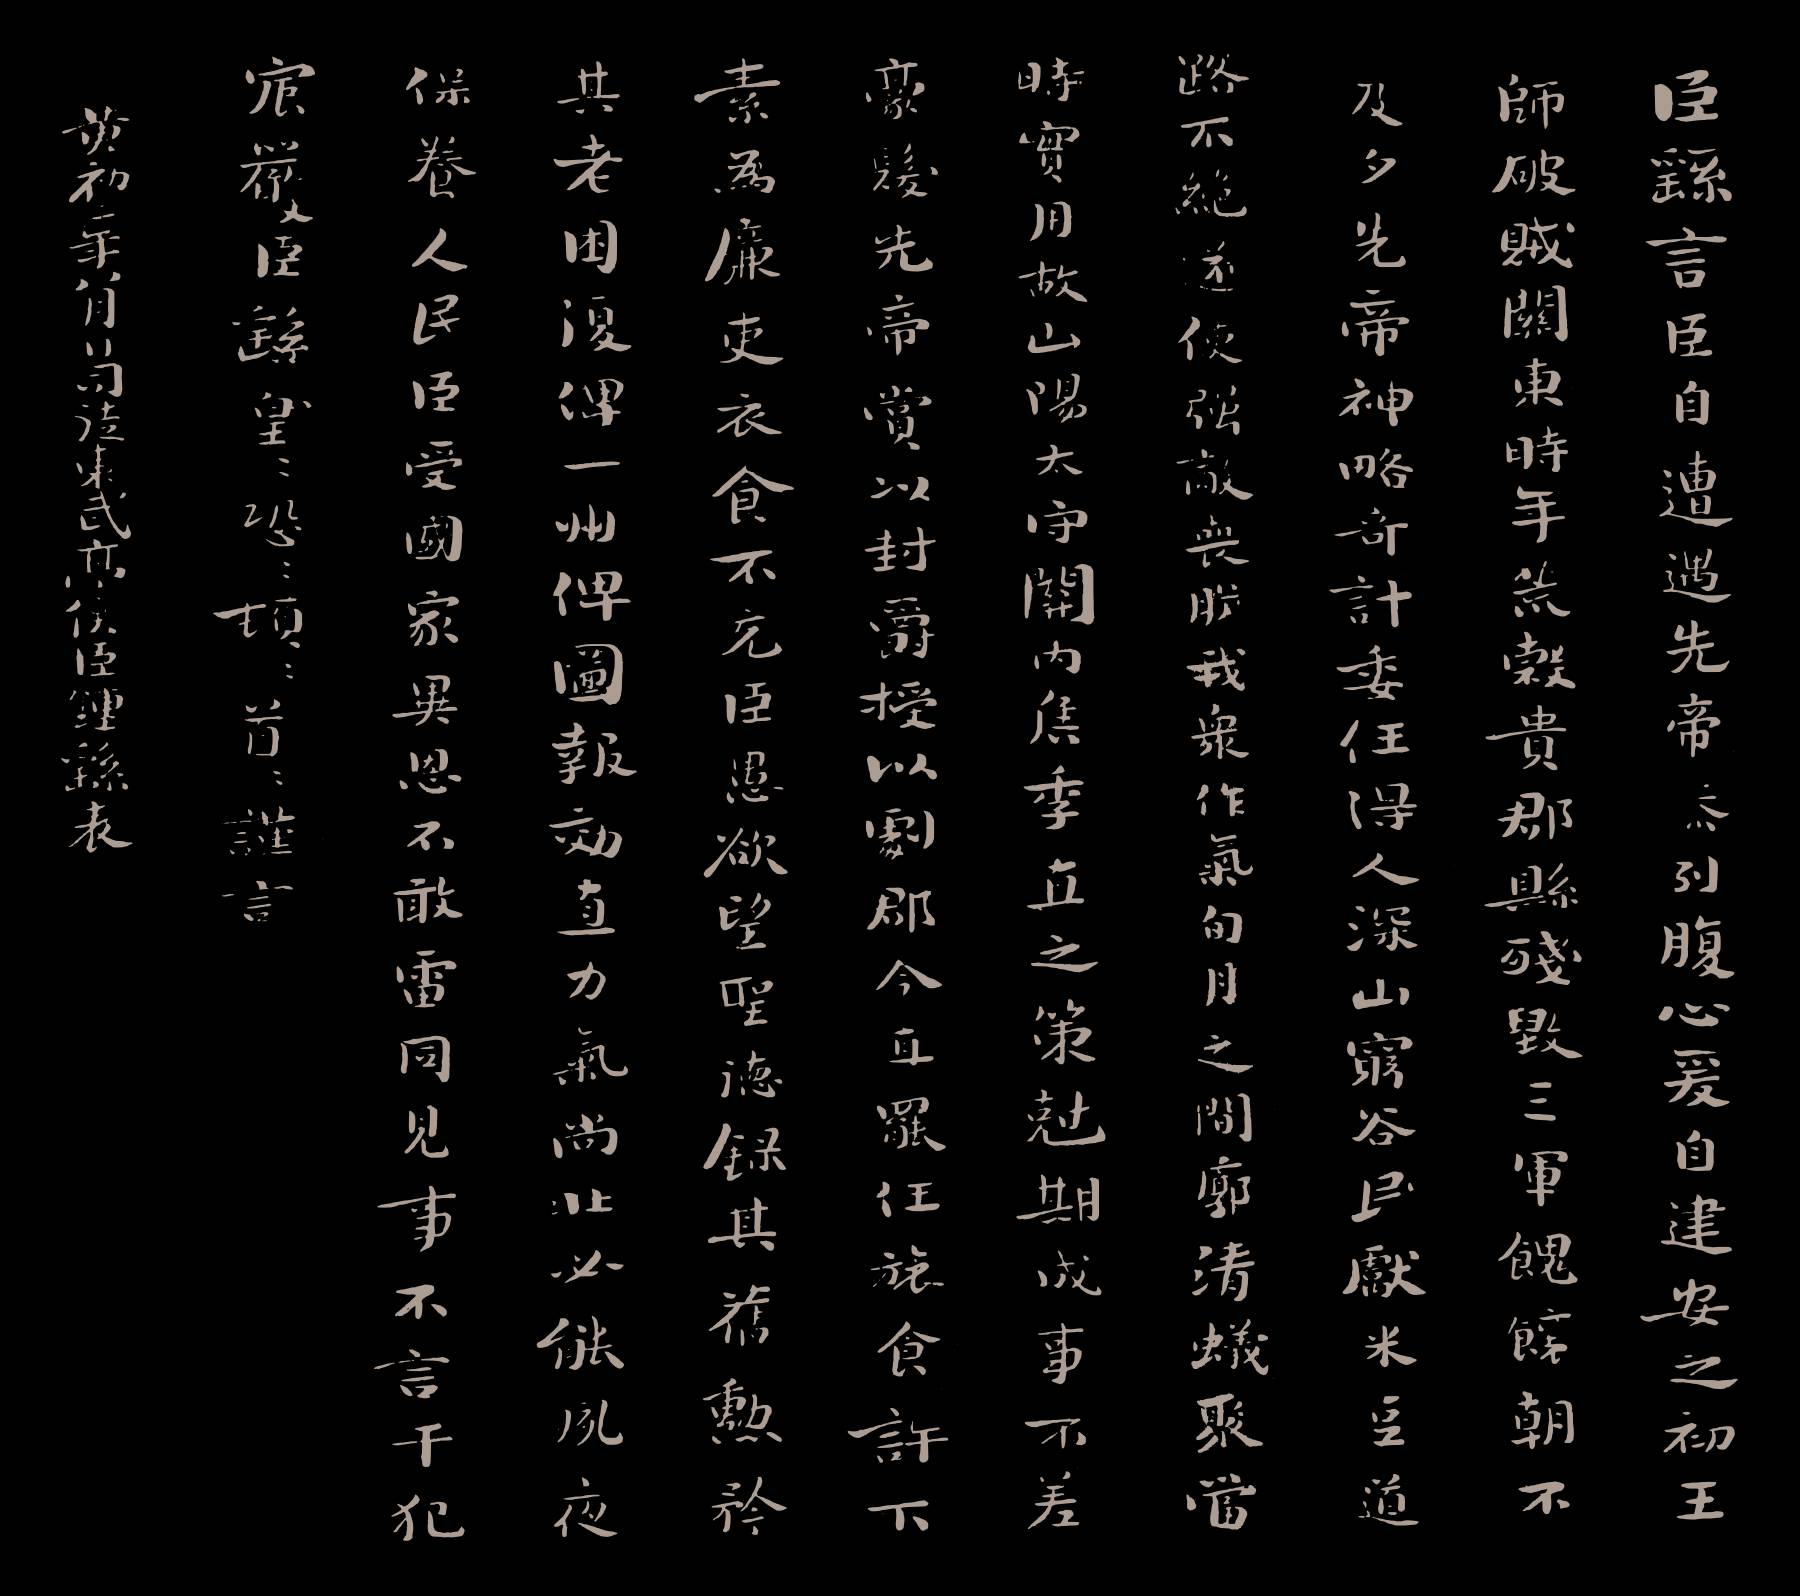 臣繇言臣自遭遇先帝忝列腹心爰自建安之初王
師破賊關東時年荒穀貴郡縣殘毀三軍餽饟朝不
及夕先帝神略奇計委任得人深山窮谷民獻米豆道
路不絕遂使強敵喪膽我衆作氣旬月之間廓清蟻聚當
時實用故山陽太守關內侯季直之策尅期成事不差
豪髮先帝賞以封爵授以劇郡今直罷任旅食許下
素為廉吏衣食不充臣愚欲望聖德錄其舊勳矜
其老困復俾一州俾圖報效直力氣尚壯必能夙夜
保養人民臣受國家異恩不敢雷同見事不言干犯
宸嚴臣繇皇〻恐〻頓〻首〻謹言
黃初二年八月日司徒東武亭侯臣鍾繇表